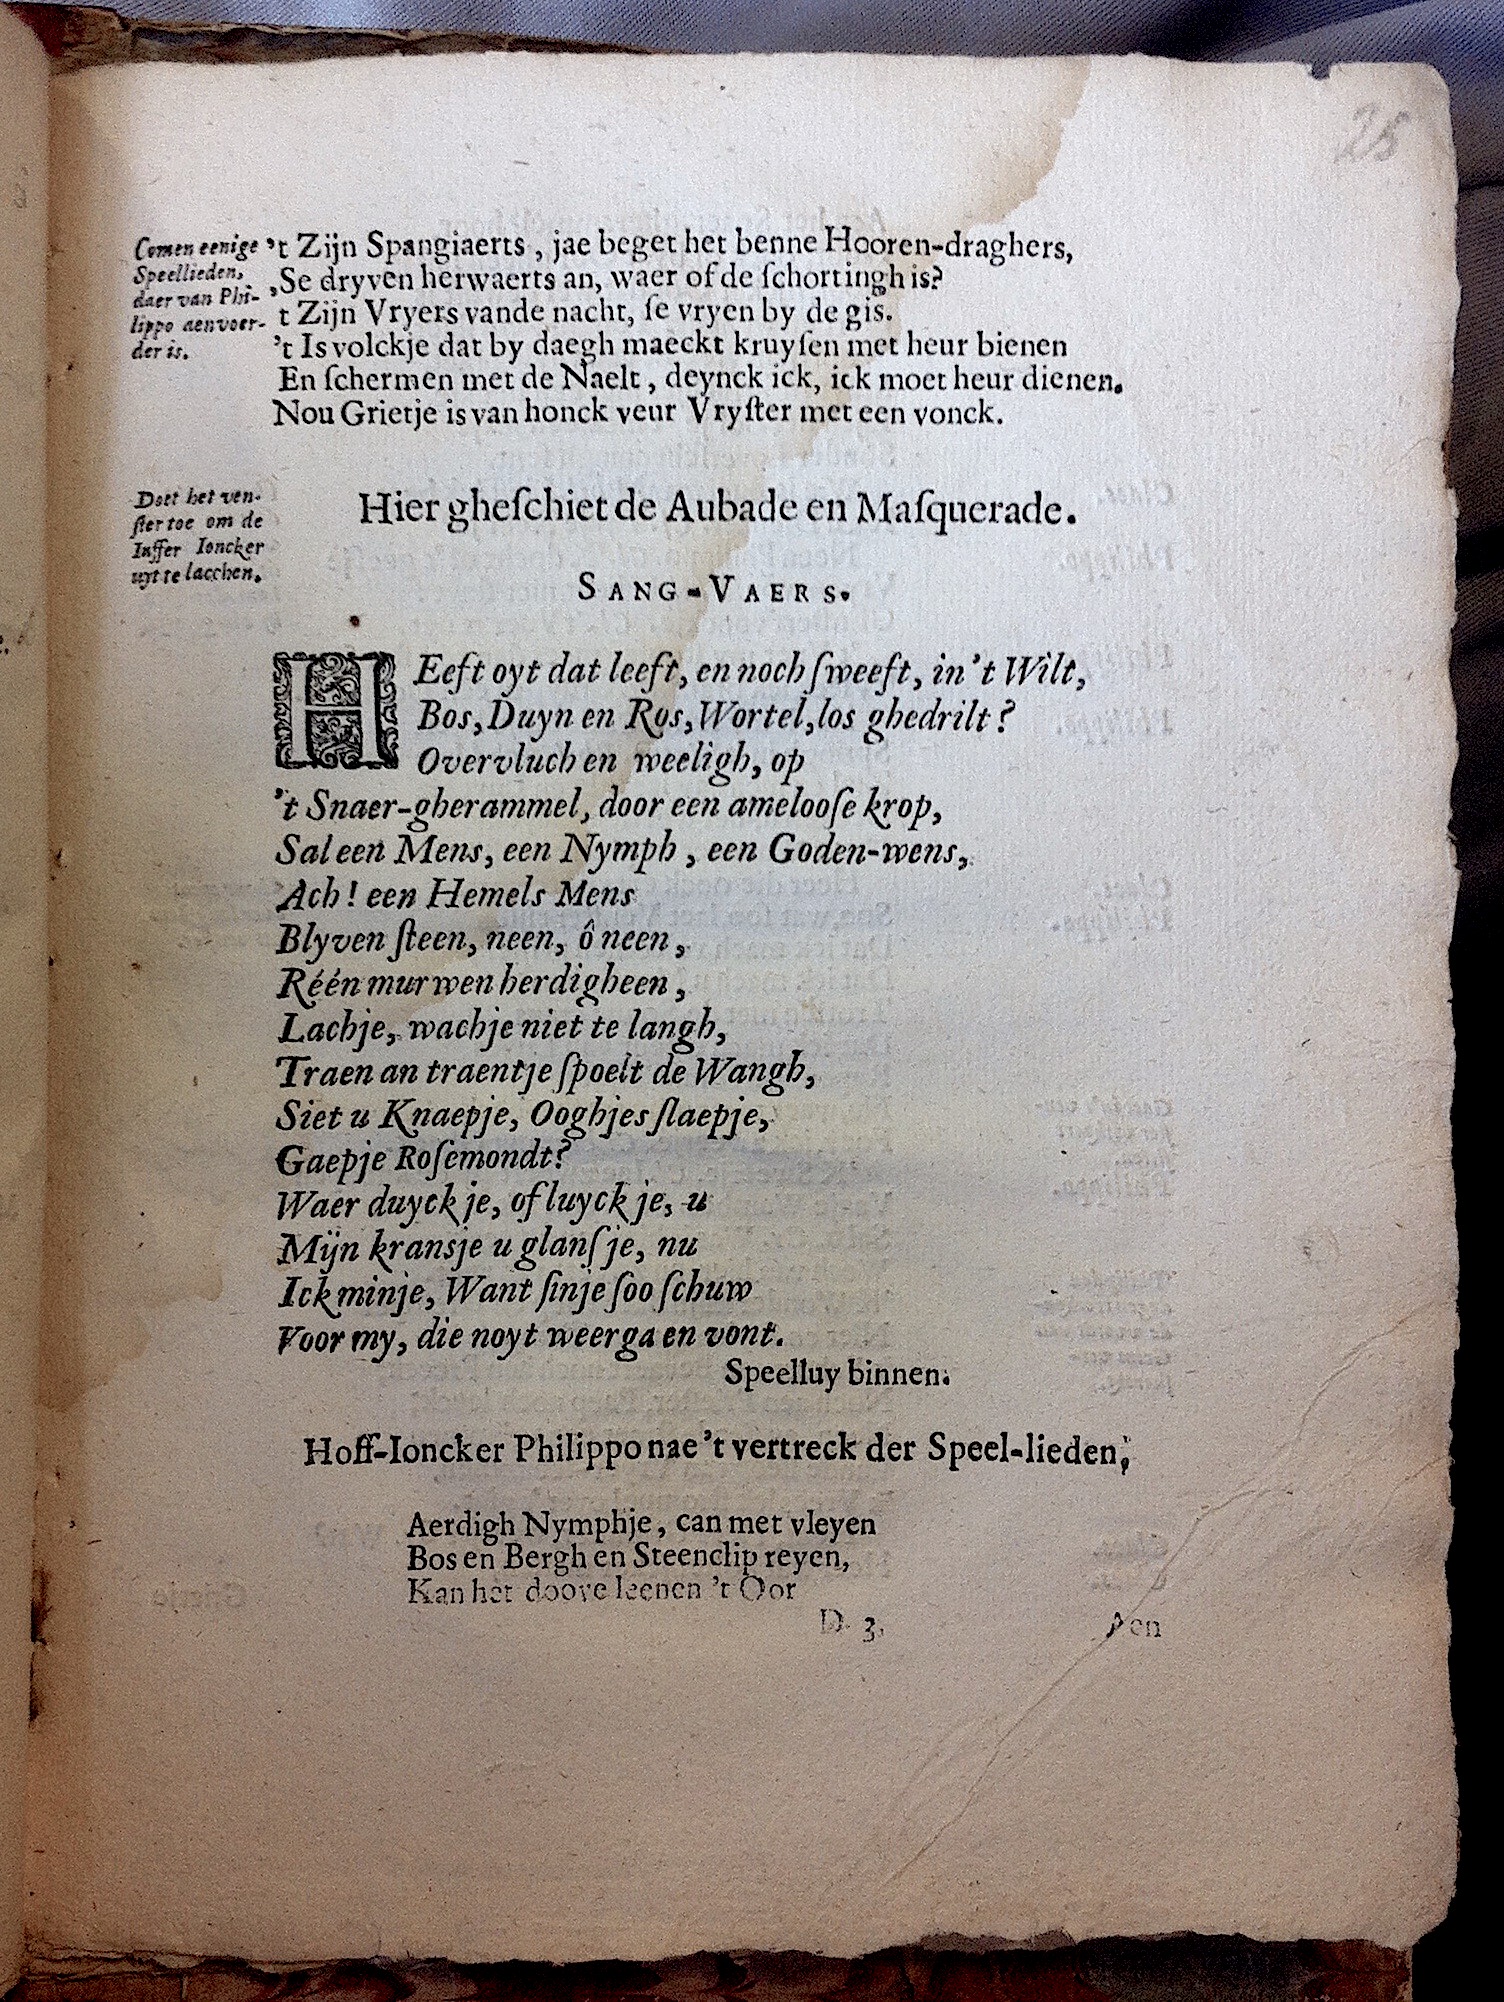 25
Comen eenige
Speellieden,
daer van Phi-
lippo aenvoer-
der is.
't Zijn Spangiaerts, jae beget het benne Hooren-draghers,
,Se dryven herwaerts an, waer of de ſchortingh is?
't Zijn Vryers vande nacht, ſe vryen by de gis.
't Is volckje dat by daegh maeckt kruyſen met heur bienen
En ſchermen met de Naelt, deynck ick, ick moet heur dienen.
Nou Grietje is van honck veur Vryſter met een vonck.
Doet het ven-
ſter toe om de
Iuffer Ioncker
uyt te lacchen.
Hier gheſchiet de Aubade en Maſquerade.
SANG-VAERS.
HEeft oyt dat leeft, en noch ſweeft, in 't Wilt,
Bos, Duyn en Ros, Wortel, los ghedrilt?
Overvluch en weeligh, op
't Snaer-gherammel, door een amelooſe krop,
Sal een Mens, een Nymph, een Goden-wens,
Ach! een Hemels Mens
Blyven ſteen, neen, ô neen,
Réén murwen herdigheen,
Lachje, wachje niet te langh,
Traen an traentje ſpoelt de Wangh,
Siet u Knaepje, Ooghjes ſlaepje,
Gaepje Roſemondt?
Waer duyck je, of luyck je, u
Mijn kransje u glanſje, nu
Ick minje, Want ſinje ſoo ſchuw
Voor my, die noyt weerga en vont.
Speelluy binnen.
Hoff-Ioncker Philippo nae 't vertreck der Speel-lieden,
Aerdigh Nymphje, can met vleyen
Bos en Bergh en Steenclip reyen,
Kan het doove leenen 't Oor
D. 3.
Aen